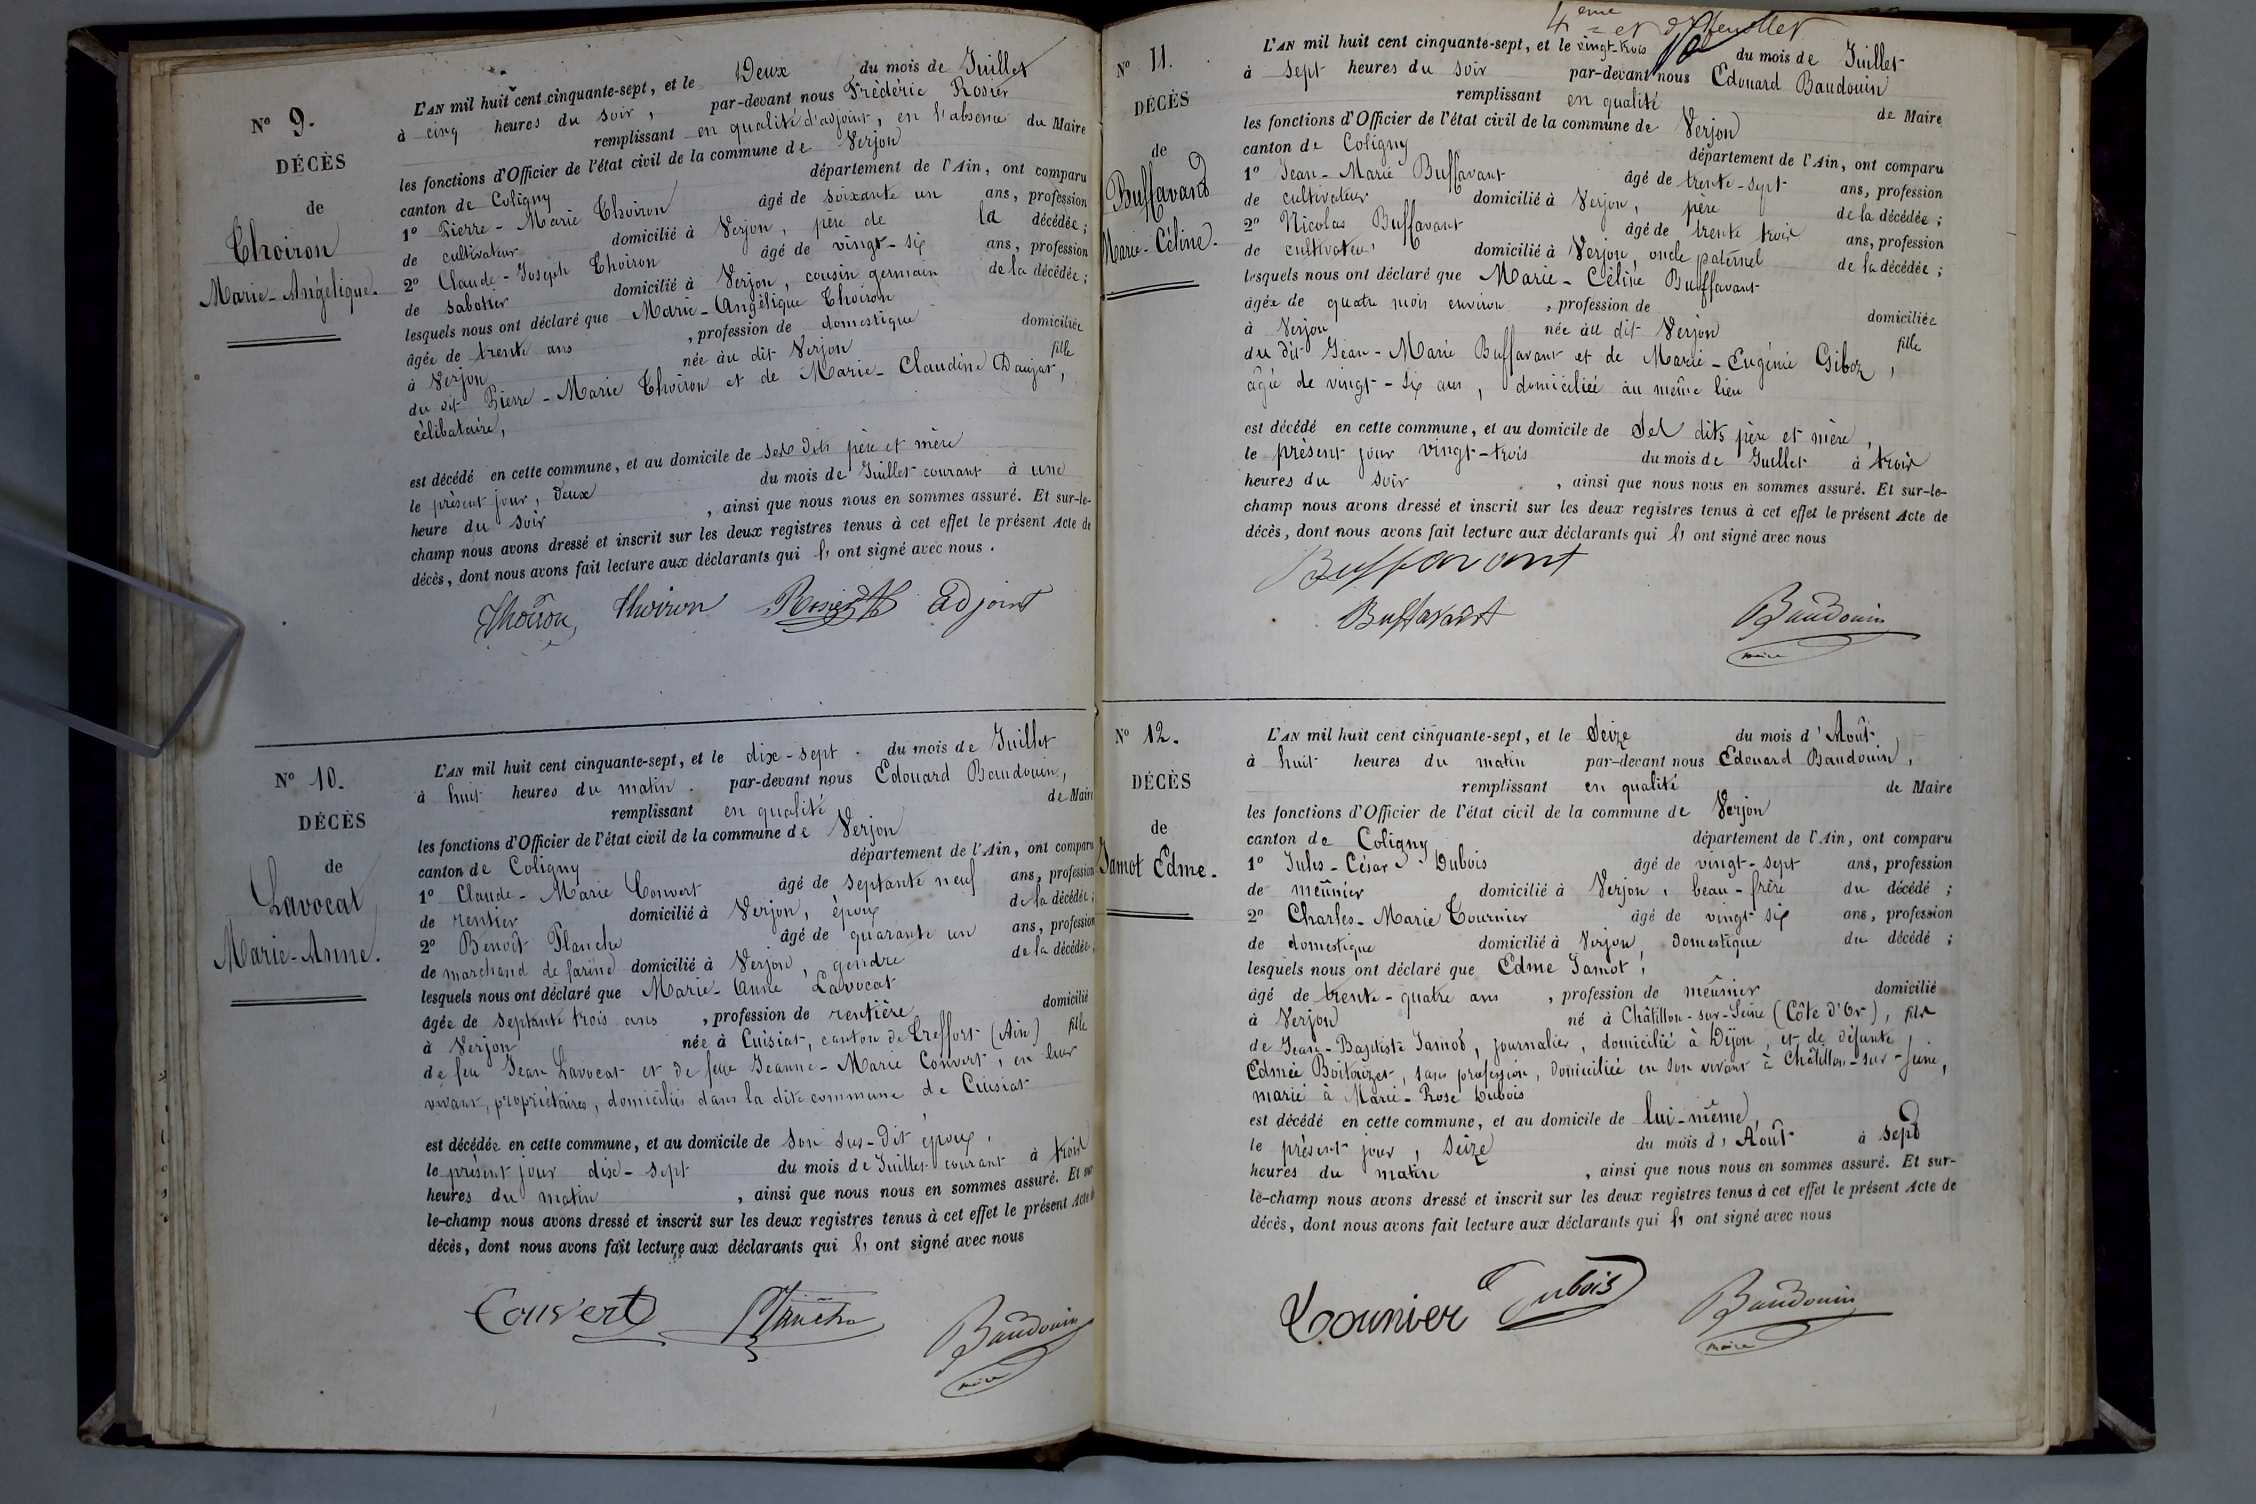 N° 9.
DÉCÈS
de
Thoiron
Marie-Angélique.
L'AN mil huit cent cinquante-sept, et le Deux du mois de Juillet
à cinq heures du soir, par-devant nous Frédéric Rosier
remplissant en qualité d'adjoint, en l'absence du Maire
les fonctions d'Officier de l'état civil de la commune de Verjon
canton de Coligny département de l'Ain, ont comparu
1° Pierre-Marie Thoiron âgé de soixante un ans, profession
de cultivateur domicilié à Verjon, père de la décédée;
2° Claude-Joseph Thoiron âgé de vingt-six ans, profession
de sabotier domicilié à Verjon, cousin germain de la décédée;
lesquels nous ont déclaré que Marie-Angélique Thoiron
âgée de trente ans, profession de domestique domiciliée
à Verjon née au dit Verjon fille
du dit Pierre-Marie Thoiron et de Marie-Claudine Daujat,
célibataire,
est décédé en cette commune, et au domicile de ses dits père et mère
le présent jour, deux du mois de Juillet courant à une
heure du soir, ainsi que nous nous en sommes assuré. Et sur-le-
champ nous avons dressé et inscrit sur les deux registres tenus à cet effet le présent Acte de
décès, dont nous avons fait lecture aux déclarants qui l'ont signé avec nous.
Thoiron Thoiron Rosier adjoint
N° 10.
DÉCÈS
de
Lavocat
Marie-Anne.
L'AN mil huit cent cinquante-sept, et le dix-sept du mois de Juillet
à huit heures du matin. par-devant nous Edouard Baudouin,
remplissant en qualité de Maire
les fonctions d'Officier de l'état civil de la commune de Verjon
canton de Coligny département de l'Ain, ont comparu
1° Claude-Marie Convert âgé de septante neuf ans, profession
de rentier domicilié à Verjon, époux de la décédée;
2° Benoît Planche âgé de quarante un ans, profession
de marchand de farine domicilié à Verjon, gendre de la décédée,
lesquels nous ont déclaré que Marie-Anne Lavocat
âgée de septante trois ans, profession de rentière domicilié
à Verjon née à Cuisiat, canton de Treffort (Ain) fille
de feu Jean Lavocat et de feue Jeanne-Marie Convert, en leur
vivant, propriétaires, domiciliés dans la dite commune de Cuisiat
est décédée en cette commune, et au domicile de son sus-dit époux,
le présent jour dix-sept du mois de Juillet courant à trois
heures du matin, ainsi que nous nous en sommes assuré. Et sur
le-champ nous avons dressé et inscrit sur les deux registres tenus à cet effet le présent Acte de
décès, dont nous avons fait lecture aux déclarants qui l'ont signé avec nous
Convert Planche Baudouin
maire
4eme et dr feuillet
N° 11.
DÉCÈS
de
Buffavand
Marie-Céline.
L'AN mil huit cent cinquante-sept, et le vingt-trois du mois de Juillet
à sept heures du soir par-devant nous Edouard Baudouin
remplissant en qualité de Maire
les fonctions d'Officier de l'état civil de la commune de Verjon
canton de Coligny département de l'Ain, ont comparu
1° Jean-Marie Buffavant âgé de trente-sept ans, profession
de cultivateur domicilié à Verjon, père de la décédée;
2° Nicolas Buffavant âgé de trente trois ans, profession
de cultivateur domicilié à Verjon, oncle paternel de la décédée;
lesquels nous ont déclaré que Marie-Céline Buffavant
âgée de quatre mois environ, profession de domiciliée
à Verjon née au dit Verjon fille
du dit Jean-Marie Buffavant et de Marie-Eugénie Giboz,
âgée de vingt-six ans, domiciliée au même lieu
est décédé en cette commune, et au domicile de ses dits père et mère,
le présent jour vingt-trois du mois de Juillet à trois
heures du soir, ainsi que nous nous en sommes assuré. Et sur-le-
champ nous avons dressé et inscrit sur les deux registres tenus à cet effet le présent Acte de
décès, dont nous avons fait lecture aux déclarants qui l'ont signé avec nous
Buffavant
Buffavant Baudouin
maire
N° 12.
DÉCÈS
de
Jamot Edme.
L'AN mil huit cent cinquante-sept, et le Seize du mois d'Août
à huit heures du matin par-devant nous Edouard Baudouin,
remplissant en qualité de Maire
les fonctions d'Officier de l'état civil de la commune de Verjon
canton de Coligny département de l'Ain, ont comparu
1° Jules-César Dubois âgé de vingt-sept ans, profession
de meûnier domicilié à Verjon, beau-frère du décédé;
2° Charles-Marie Tournier âgé de vingt six ans, profession
de domestique domicilié à Verjon, domestique du décédé;
lesquels nous ont déclaré que Edme Jamot,
âgé de trente-quatre ans, profession de meûnier domicilié
à Verjon né à Châtillon-sur-Seine (Côte d'Or), fils
de Jean-Baptiste Jamot, journalier, domicilié à Dijon, et de défunte
Edmée Boitouzet, sans profession, domiciliée en son vivant à Châtillon-sur-Seine,
marié à Marie-Rose Dubois
est décédé en cette commune, et au domicile de lui-même,
le présent jour, seize du mois d'Août à sept
heures du matin, ainsi que nous nous en sommes assuré. Et sur-
le-champ nous avons dressé et inscrit sur les deux registres tenus à cet effet le présent Acte de
décès, dont nous avons fait lecture aux déclarants qui l'ont signé avec nous
Tournier Dubois Baudouin
maire